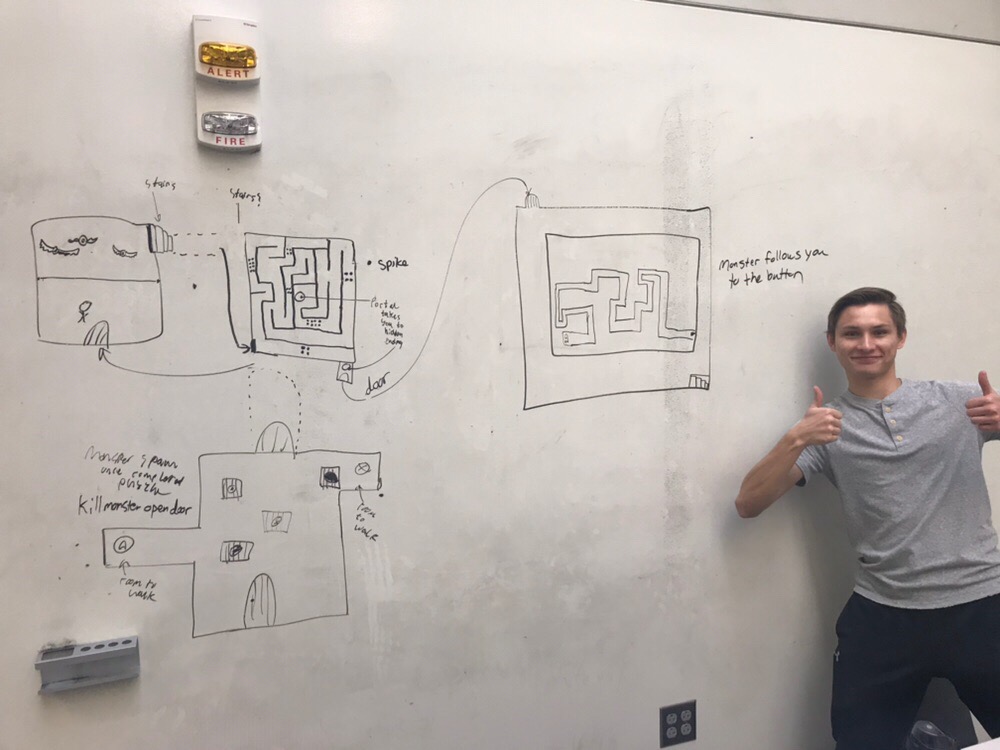 ALERT
FIRE
stairs
stairs?
• spike
Portal
takes
you to
hidden
ending
door
Monster follows you
to the button
Monster spawn
once completed
puzzle
kill monster open door
A
room to
walk
room
to
walk